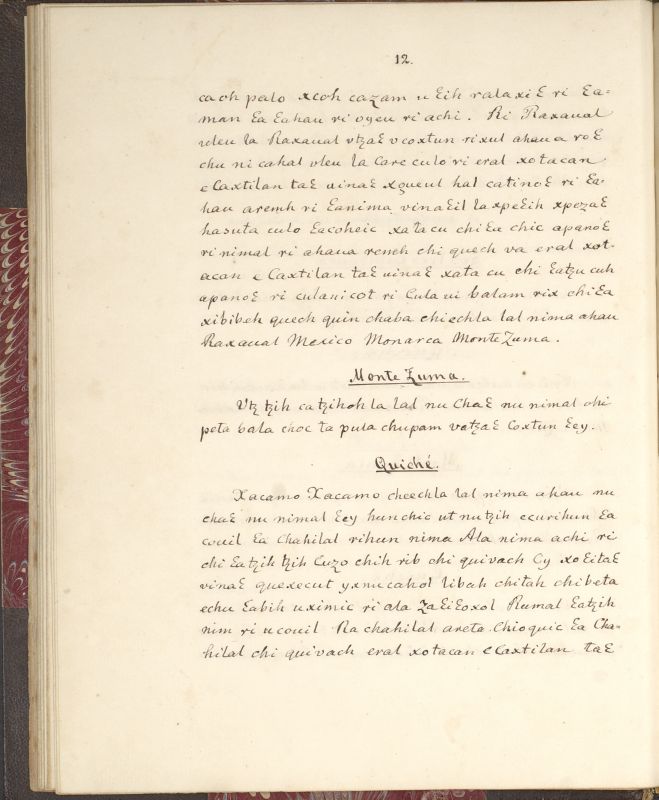 12.
ca oh palo xcoh cazam u Ɛih ralaxiƐ ri Ɛa=
man Ɛa Ɛahau ri oyeu ri achi. Ri Raxaual
uleu la Raxaual vtzaƐ v coxtun rixul ahaua roƐ
chu ni cahal vleu la Care culo ri eral xotacan
e Caxtilan taƐ uinaƐ xqueul hal catinoƐ ri Ɛa=
hau aremh ri Ɛanima vinaƐil la xpeƐih xpozaƐ
hasuta culo Ɛacoheic xatacu chi Ɛa chic apanoƐ
ri nimal ri ahaua reneh chi quech va eral xot-
acan e Caxtilan taƐ uinaƐ xata cu chi Ɛatzu cuh
apanoƐ ri culanicot ri Cula ui balam rix chi Ɛa
xibibeh quech quin chaba chiechla lal nima ahau
Raxaual Mexico Monarca Monte Zuma.
Monte Zuma.
Utz tzih catzihoh la lal nu ChaƐ nu nimal chi
peta bala choc ta pula chupam vatzaƐ Coxtun Ɛey.
Quiché.
Xacamo Xacamo cheechla lal nima ahau nu
chaƐ nu nimal Ɛey hunchic ut nutzih ecurihun Ɛa
couil Ɛa Chahilal rihun nima Ala nima achi ri
chi Ɛatzih tzih Cuzo chih rib chi quivach Cy xoƐitaƐ
vinaƐ quexecut yxnucahol libah chitah chibeta
echu Ɛabih uximic ri ala ZaƐiƐoxol Rumal Ɛatzih
nim ri ucouil Ra chahilal areta Chioquic Ɛa Cha=
hilal chi quivach eral xotacan e Caxtilan taƐ